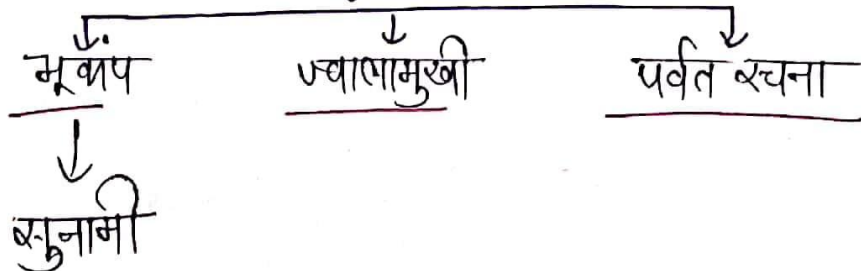 भूकंप ज्वालामुखी पर्वत रचना
सुनामी